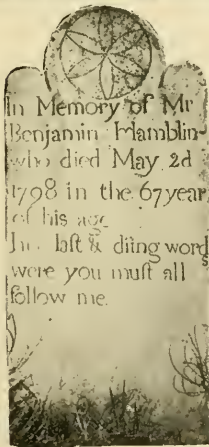 In Memory of Mr
Benjamin Hamblin
who died May 2d
1798 in the 67 year
of his age
laſt & diing words
were you muſt all
follow me.